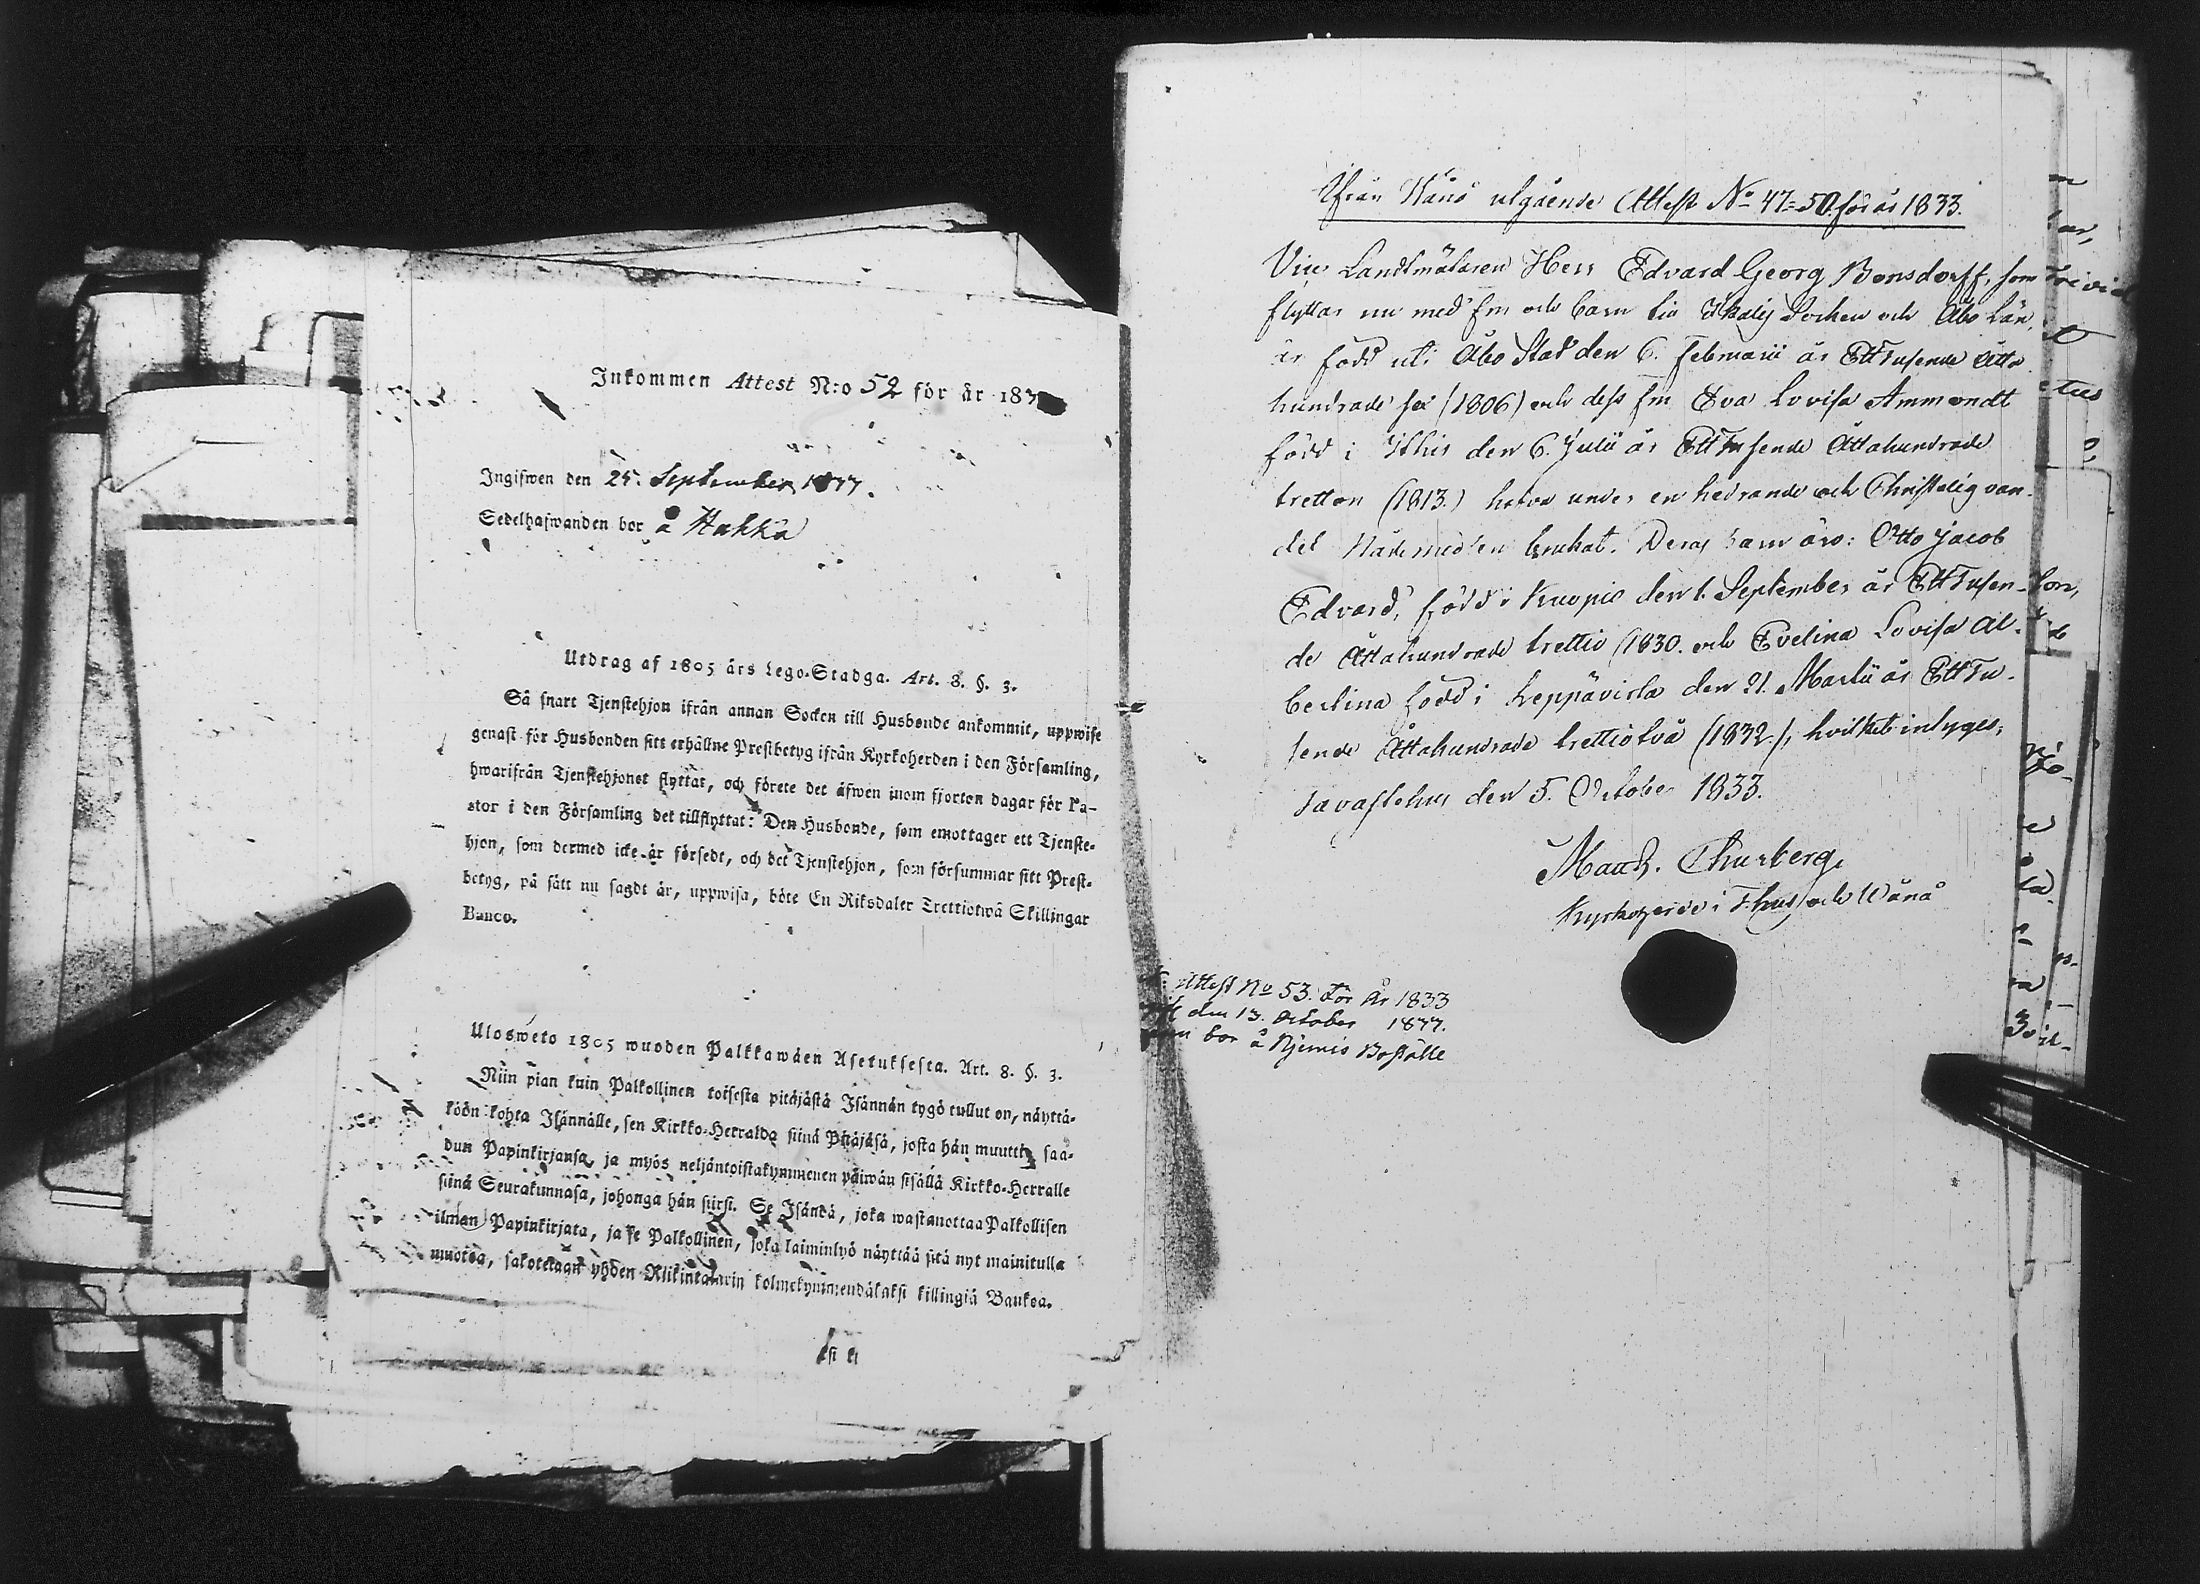 Inkommen Attest N:o 52 för år 183
Ingifwen den 25. September 1833.
Sedelhafwanden bor å Hakka
Utdrag af 1805 års Lego-Stadga. Art. 8. §. 3.
Så snart Tjenstehjon ifrån annan Socken till Husbonde ankommit, uppwise
genast för Husbonden sitt erhållne Prestbetyg ifrån Kyrkoherden i den Församling,
hwarifrån Tjenstehjonet flyttat, och förete det äfwen inom fjorton dagar för Pa-
stor i den Församling det tillflyttat: Den Husbonde, som emottager ett Tjenste-
hjon, som dermed icke är försedt, och det Tjenstehjon, som försummar sitt Prest-
betyg, på sätt nu sagdt är, uppwisa, böte En Riksdaler Trettiotwå Skillingar
Banco.
Ulosweto 1805 wuoden Palkkawäen Asetuksesta. Art. 8. §. 3.
Niin pian kuin Palkollinen toisesta pitäjästä Isännän tygö tullut on, näyttä-
köön kohta Isännälle, sen Kirkko-Herralda siinä Pitäjäsä, josta hän muutti, saa-
dun Papinkirjansa, ja myös neljäntoistakymmenen päiwän sisällä Kirkko-Herralle
siinä Seurakunnasa, johonga hän siirsi. Se Isändä, joka wastanottaa Palkollisen
ilman Papinkirjata, ja se Palkollinen, joka laiminlyö näyttää sitä nyt mainitulla
muotoa, sakotetaan yhden Riikintalarin kolmekymmendäkaksi killingiä Bankoa.
Ifrån Wånå utgående Attest No 47-50 för år 1833.
Vice Landtmätaren Herr Edvard Georg Bonsdorff, som
flyttar nu med fru och barn till Ikalis Socken och Åbo Län,
är född uti Åbo Stad den 6. Februarii år Ett Tusende Åtta
hundrade sex (1806) och dess fru Eva Lovisa Ammondt
född i Ithis den 6. Julii år Ett Tusende Åttahundrade
tretton (1813.) hafva under en hedrande och Christelig van-
del Nådemedlen brukat. Deras barn äro: Otto Jacob
Edvard, född i Kuopio den 1. September år Ett Tusen-
de Åttahundrade trettio (1830. och Evelina Lovisa Al-
bertina född i Leppävirta den 21. Martii år Ett Tu-
sende Åttahundrade trettiotvå (1832), hvilket intygas,
Tavastehus den 5. October 1833.
Math. Churberg.
Kyrkoherde i T:hus och Wånå
Attest No 53. för År 1833
den 13. October 1833.
bor å Kjernis Boställe